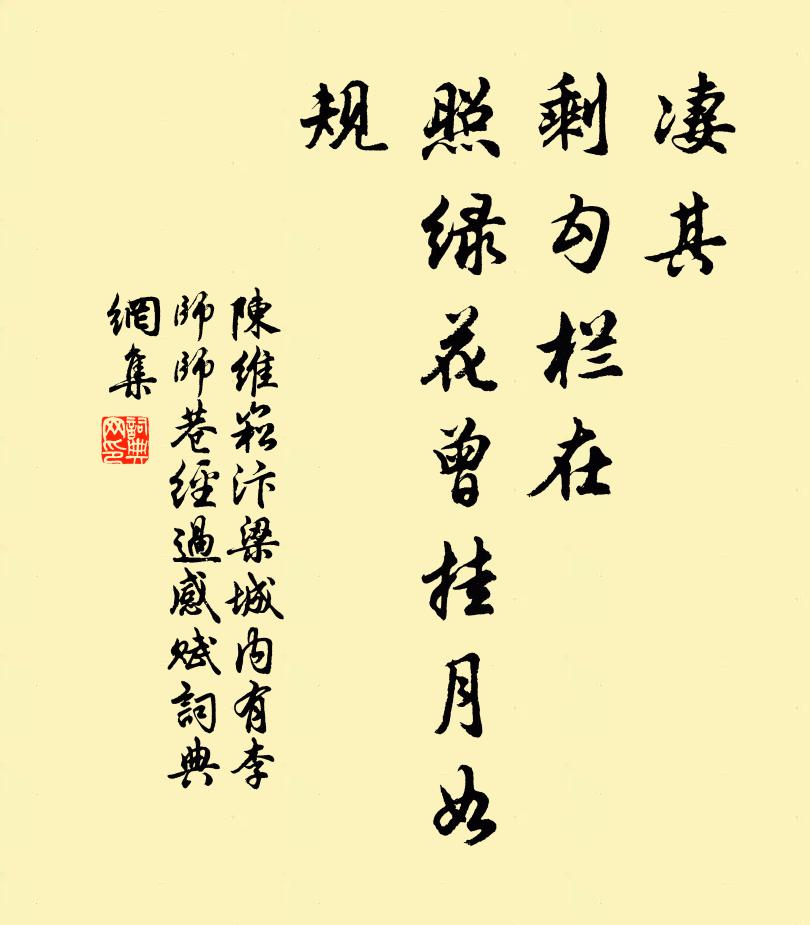 凄其
剩勾栏在
照绿花曾挂月如
规
陳維崧汴梁城内有李
師師巷經過感赋詞典
網集
詞典
网印